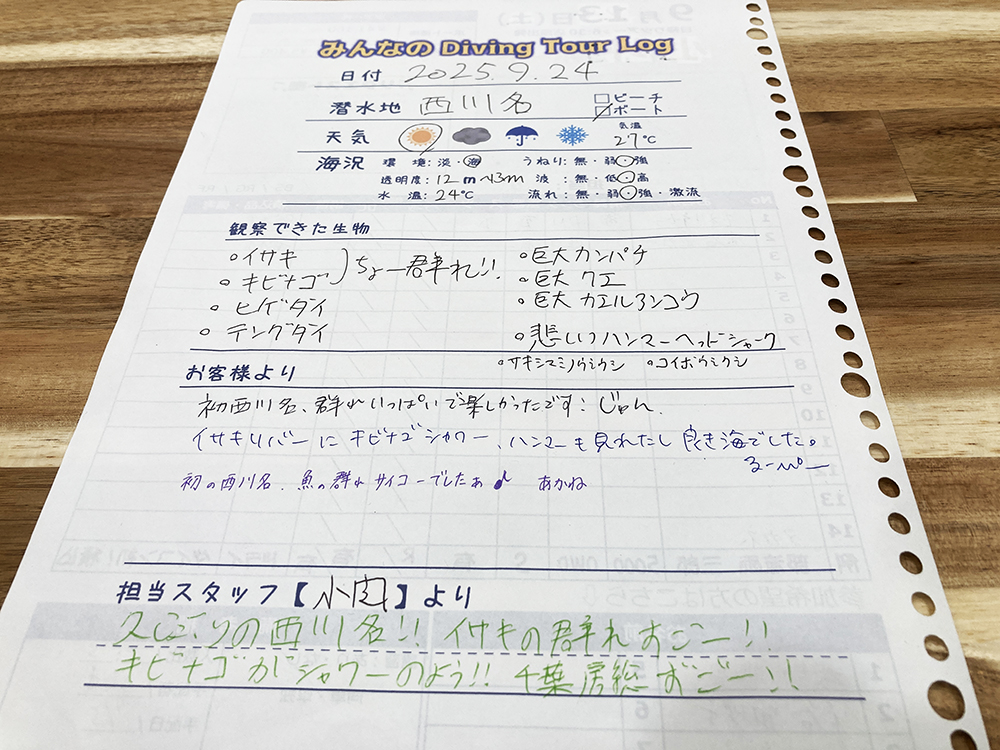 みんなの Diving Tour Log
日付 2025.9.24
潜水地 西川名 □ビーチ
☑ボート
天気 気温 27℃
海況 環境:淡・海 うねり:無・弱・強
透明度:12m~13m 波:無・低・高
水温:24℃ 流れ:無・弱・強・激流
観察できた生物
○イサキ
○キビナゴ ちょー群れ!!
○ヒゲダイ
○テングダイ
○巨大カンパチ
○巨大クエ
○巨大カエルアンコウ
○悲しいハンマーヘッドシャーク
○サキシマミノウミウシ ○コイボウミウシ
お客様より
初西川名、群れいっぱいで楽しかったです! じゅん.
イサキリバーにキビナゴシャワー、ハンマーも見れたし良き海でした。
るーぺー
初の西川名、魚の群れサイコーでしたぁ♪ あかね
担当スタッフ【小肉】より
久しぶりの西川名!! イサキの群れすごー!!
キビナゴがシャワーのよう!! 千葉房総すごー!!